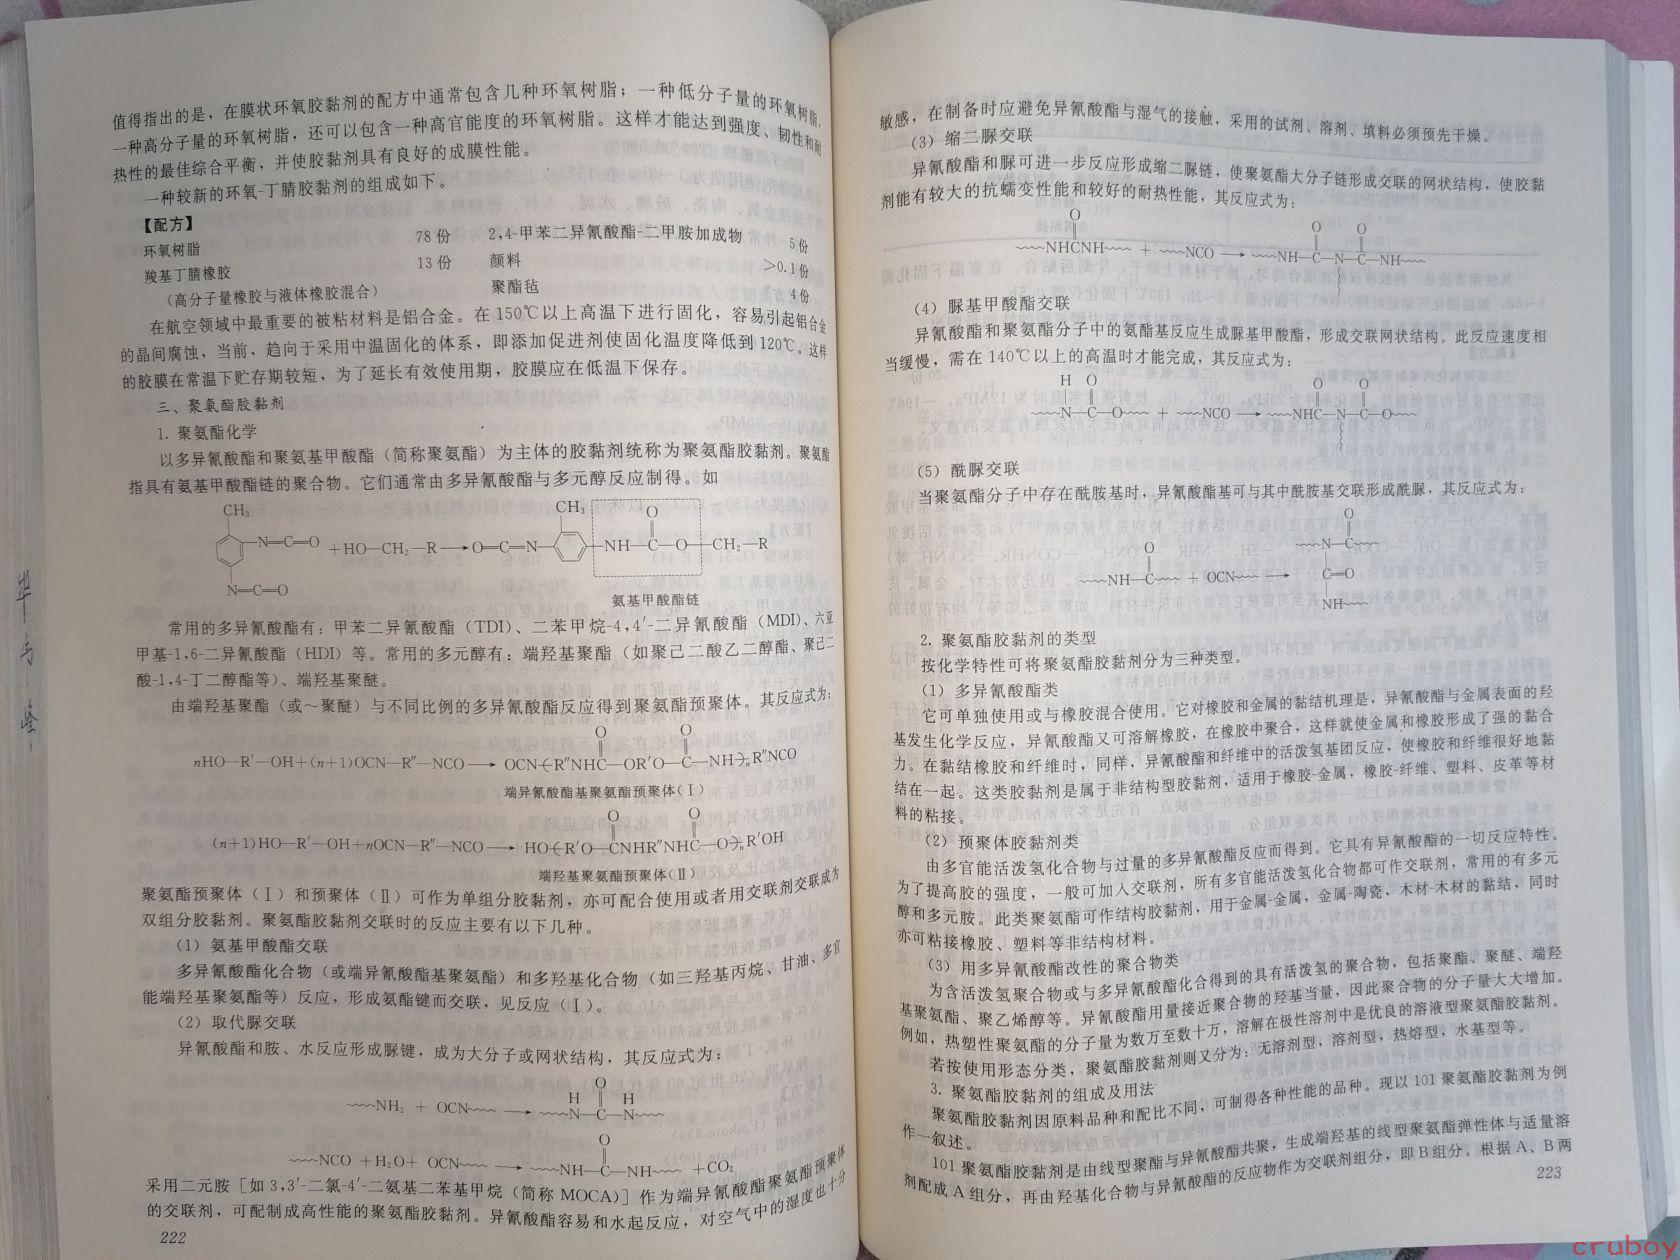 值得指出的是，在膜状环氧胶黏剂的配方中通常包含几种环氧树脂；一种低分子量的环氧树脂，
一种高分子量的环氧树脂，还可以包含一种高官能度的环氧树脂。这样才能达到强度、韧性和耐
热性的最佳综合平衡，并使胶黏剂具有良好的成膜性能。
一种较新的环氧-丁腈胶黏剂的组成如下。
【配方】
环氧树脂 78 份 2,4-甲苯二异氰酸酯-二甲胺加成物 5 份
羧基丁腈橡胶 13 份 颜料 ≥0.1 份
（高分子量橡胶与液体橡胶混合） 聚酯毡 4 份
在航空领域中最重要的被粘材料是铝合金。在 150℃以上高温下进行固化，容易引起铝合金
的晶间腐蚀，当前，趋向于采用中温固化的体系，即添加促进剂使固化温度降低到 120℃。这样
的胶膜在常温下贮存期较短，为了延长有效使用期，胶膜应在低温下保存。
三、聚氨酯胶黏剂
1. 聚氨酯化学
以多异氰酸酯和聚氨基甲酸酯（简称聚氨酯）为主体的胶黏剂统称为聚氨酯胶黏剂。聚氨酯
指具有氨基甲酸酯链的聚合物。它们通常由多异氰酸酯与多元醇反应制得。如
CH₃ CH₃ O
N—C—O +HO—CH₂—R→O—C—N— —NH—C—O—CH₂—R
N—C—O
氨基甲酸酯链
常用的多异氰酸酯有：甲苯二异氰酸酯（TDI）、二苯甲烷-4,4′-二异氰酸酯（MDI）、六亚
甲基-1,6-二异氰酸酯（HDI）等。常用的多元醇有：端羟基聚酯（如聚己二酸乙二醇酯、聚己二
酸-1,4-丁二醇酯等）、端羟基聚醚。
由端羟基聚酯（或～聚醚）与不同比例的多异氰酸酯反应得到聚氨酯预聚体。其反应式为：
O O
nHO—R′—OH+(n+1)OCN—R″—NCO→ OCN⟮R″NHC—OR′O—C—NH⟯ₙR″NCO
端异氰酸酯基聚氨酯预聚体(Ⅰ)
O O
(n+1)HO—R′—OH+nOCN—R″—NCO→ HO⟮R′O—CNHR″NHC—O⟯ₙR′OH
端羟基聚氨酯预聚体(Ⅱ)
聚氨酯预聚体（Ⅰ）和预聚体（Ⅱ）可作为单组分胶黏剂，亦可配合使用或者用交联剂交联成为
双组分胶黏剂。聚氨酯胶黏剂交联时的反应主要有以下几种。
（1）氨基甲酸酯交联
多异氰酸酯化合物（或端异氰酸酯基聚氨酯）和多羟基化合物（如三羟基丙烷、甘油、多官
能端羟基聚氨酯等）反应，形成氨酯键而交联，见反应（Ⅰ）。
（2）取代脲交联
异氰酸酯和胺、水反应形成脲键，成为大分子或网状结构，其反应式为：
H O H
～～NH₂ + OCN～～ → ～～N—C—N～～
O
～～NCO +H₂O+ OCN～～ → ～～NH—C—NH～～ +CO₂
采用二元胺［如 3,3′-二氯-4′-二氨基二苯基甲烷（简称 MOCA）］作为端异氰酸酯聚氨酯预聚体
的交联剂，可配制成高性能的聚氨酯胶黏剂。异氰酸酯容易和水起反应，对空气中的湿度也十分
222
敏感，在制备时应避免异氰酸酯与湿气的接触，采用的试剂、溶剂、填料必须预先干燥。
（3）缩二脲交联
异氰酸酯和脲可进一步反应形成缩二脲链，使聚氨酯大分子链形成交联的网状结构，使胶黏
剂能有较大的抗蠕变性能和较好的耐热性能，其反应式为：
O O O
～～NHCNH～～ + ～～NCO → ～～NH—C—N—C—NH～～
（4）脲基甲酸酯交联
异氰酸酯和聚氨酯分子中的氨酯基反应生成脲基甲酸酯，形成交联网状结构。此反应速度相
当缓慢，需在 140℃以上的高温时才能完成，其反应式为：
H O O O
～～N—C—O～～ + ～～NCO → ～～NHC—N—C—O～～
（5）酰脲交联
当聚氨酯分子中存在酰胺基时，异氰酸酯基可与其中酰胺基交联形成酰脲，其反应式为：
O
O ～～N—C～～
～～NH—C～～ + OCN～～ → C—O
NH～～
2. 聚氨酯胶黏剂的类型
按化学特性可将聚氨酯胶黏剂分为三种类型。
（1）多异氰酸酯类
它可单独使用或与橡胶混合使用。它对橡胶和金属的黏结机理是，异氰酸酯与金属表面的羟
基发生化学反应，异氰酸酯又可溶解橡胶，在橡胶中聚合，这样就使金属和橡胶形成了强的黏合
力。在黏结橡胶和纤维时，同样，异氰酸酯和纤维中的活泼氢基团反应，使橡胶和纤维很好地黏
结在一起。这类胶黏剂是属于非结构型胶黏剂，适用于橡胶-金属，橡胶-纤维、塑料、皮革等材
料的粘接。
（2）预聚体胶黏剂类
由多官能活泼氢化合物与过量的多异氰酸酯反应而得到。它具有异氰酸酯的一切反应特性。
为了提高胶的强度，一般可加入交联剂，所有多官能活泼氢化合物都可作交联剂，常用的有多元
醇和多元胺。此类聚氨酯可作结构胶黏剂，用于金属-金属，金属-陶瓷，木材-木材的黏结，同时
亦可粘接橡胶、塑料等非结构材料。
（3）用多异氰酸酯改性的聚合物类
为含活泼氢聚合物或与多异氰酸酯化合得到的具有活泼氢的聚合物，包括聚酯、聚醚、端羟
基聚氨酯、聚乙烯醇等。异氰酸酯用量接近聚合物的羟基当量，因此聚合物的分子量大大增加。
例如，热塑性聚氨酯的分子量为数万至数十万，溶解在极性溶剂中是优良的溶液型聚氨酯胶黏剂。
若按使用形态分类，聚氨酯胶黏剂则又分为：无溶剂型，溶剂型，热熔型，水基型等。
3. 聚氨酯胶黏剂的组成及用法
聚氨酯胶黏剂因原料品种和配比不同，可制得各种性能的品种。现以 101 聚氨酯胶黏剂为例
作一叙述。
101 聚氨酯胶黏剂是由线型聚酯与异氰酸酯共聚，生成端羟基的线型聚氨酯弹性体与适量溶
剂配成 A 组分，再由羟基化合物与异氰酸酯的反应物作为交联剂组分，即 B 组分。根据 A、B 两
223
cruboy